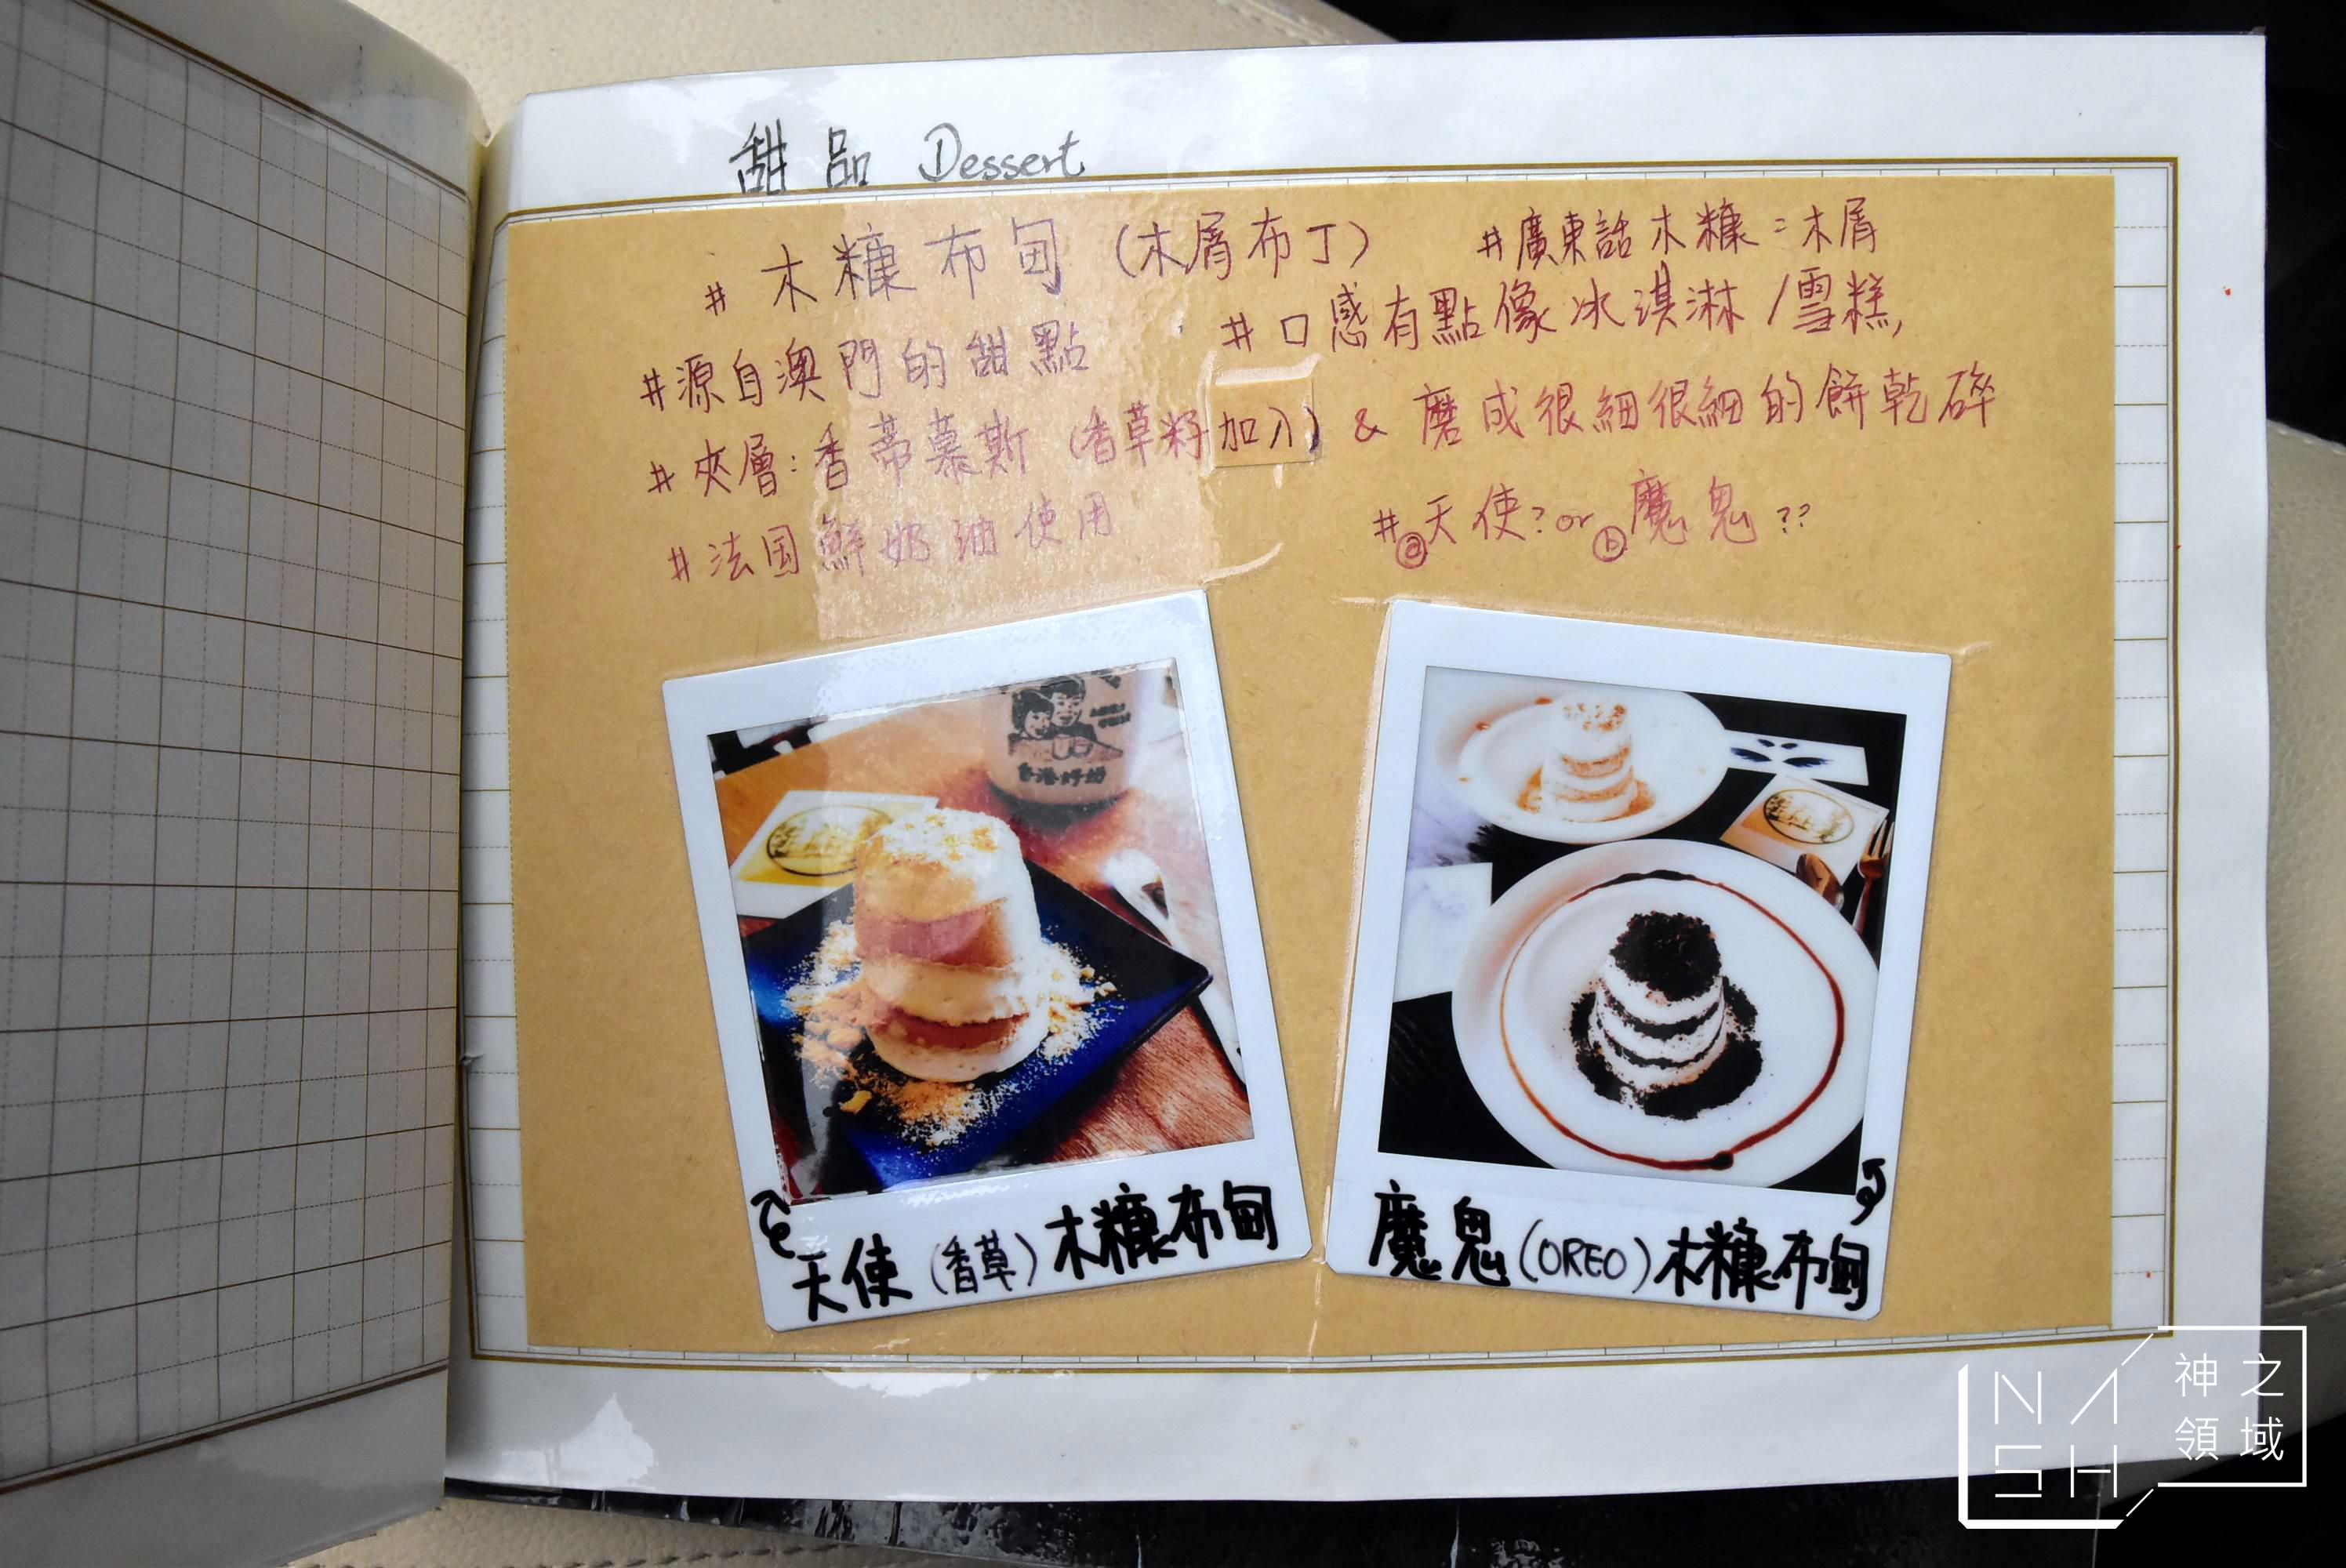 甜品 Dessert
# 木糠布甸 (木屑布丁) #廣東話木糠=木屑
#源自澳門的甜點 #口感有點像冰淇淋/雪糕,
#夾層:香蒂慕斯 (香草籽加入) & 磨成很細很細的餅乾碎
#法国鮮奶油使用 #ⓐ天使? or ⓑ魔鬼??
香港好媽
天使 (香草) 木糠布甸
魔鬼 (OREO) 木糠布甸
NASH
神之
領域